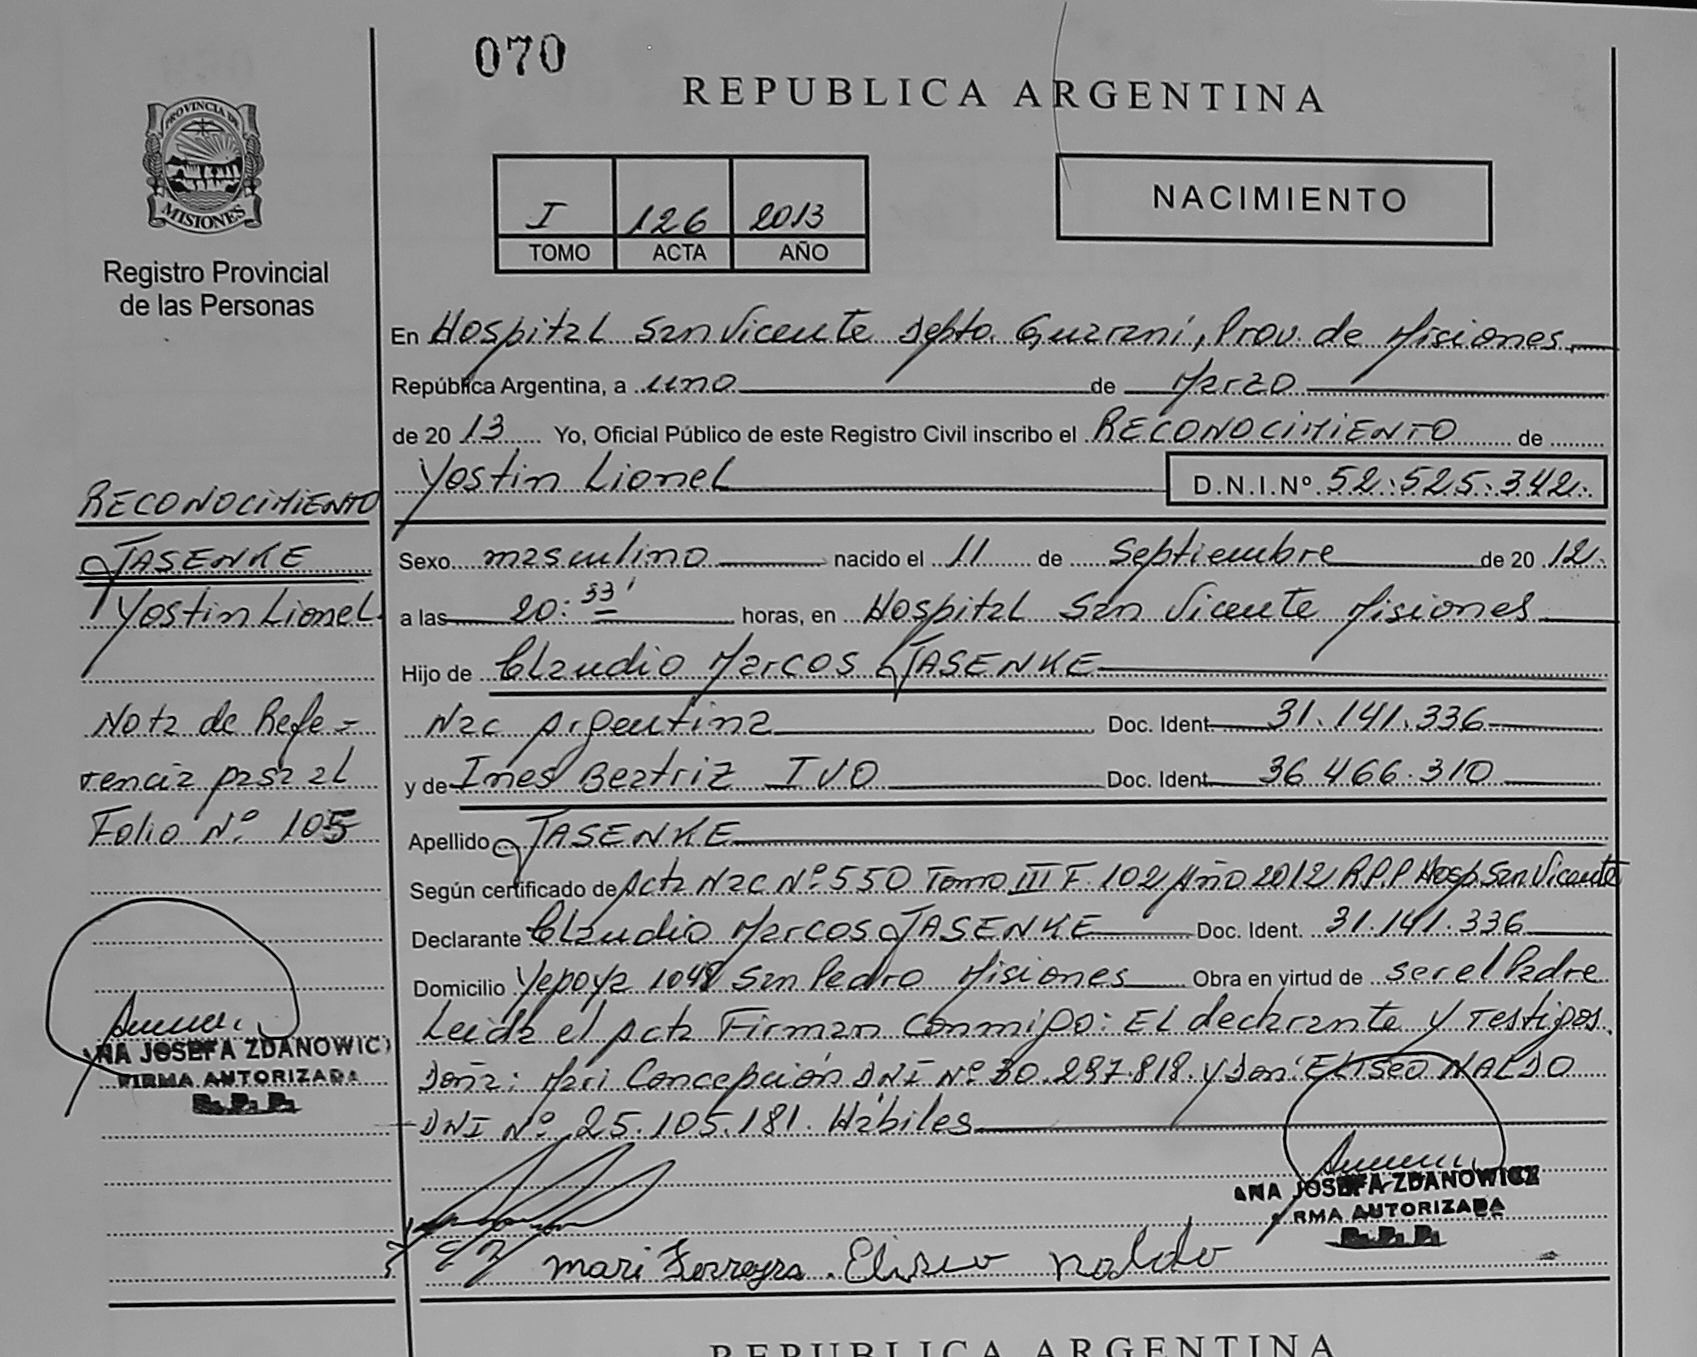 070
REPUBLICA ARGENTINA
PROVINCIA DE
MISIONES
Registro Provincial
de las Personas
I 126 2013
TOMO ACTA AÑO
NACIMIENTO
En Hospital San Vicente Depto. Guarani, Prov. de Misiones
República Argentina, a uno de Marzo
de 20 13 Yo, Oficial Público de este Registro Civil inscribo el RECONOCIMIENTO de
Yostin Lionel D.N.I.Nº 52.525.342.
Sexo masculino nacido el 11 de Septiembre de 20 12.
a las 20:33' horas, en Hospital San Vicente Misiones
Hijo de Claudio Marcos JASENKE
Nac Argentina Doc. Ident 31.141.336
y de Ines Beatriz IVO Doc. Ident 36.466.310
Apellido JASENKE
Según certificado de Acta Nac Nº 550 Tomo III F. 102 Año 2012 R.P.P Hosp. San Vicente
Declarante Claudio Marcos JASENKE Doc. Ident. 31.141.336
Domicilio Yapoya 1048 San Pedro Misiones Obra en virtud de ser el Padre
Leida el Acta Firman Conmigo: El declarante y Testigos
Doña: Mari Concepción DNI Nº 30.297.818. y Don: ELISEO NALDO
DNI Nº 25.105.181. Hábiles
RECONOCIMIENTO
JASENKE
Yostin Lionel
Nota de Refe=
rencia pasa al
Folio Nº 105
ANA JOSEFA ZDANOWIC
FIRMA AUTORIZADA
R.P.P.
ANA JOSEFA ZDANOWICZ
FIRMA AUTORIZADA
R.P.P.
Mari Ferreyra. Eliseo Naldo
REPUBLICA ARGENTINA